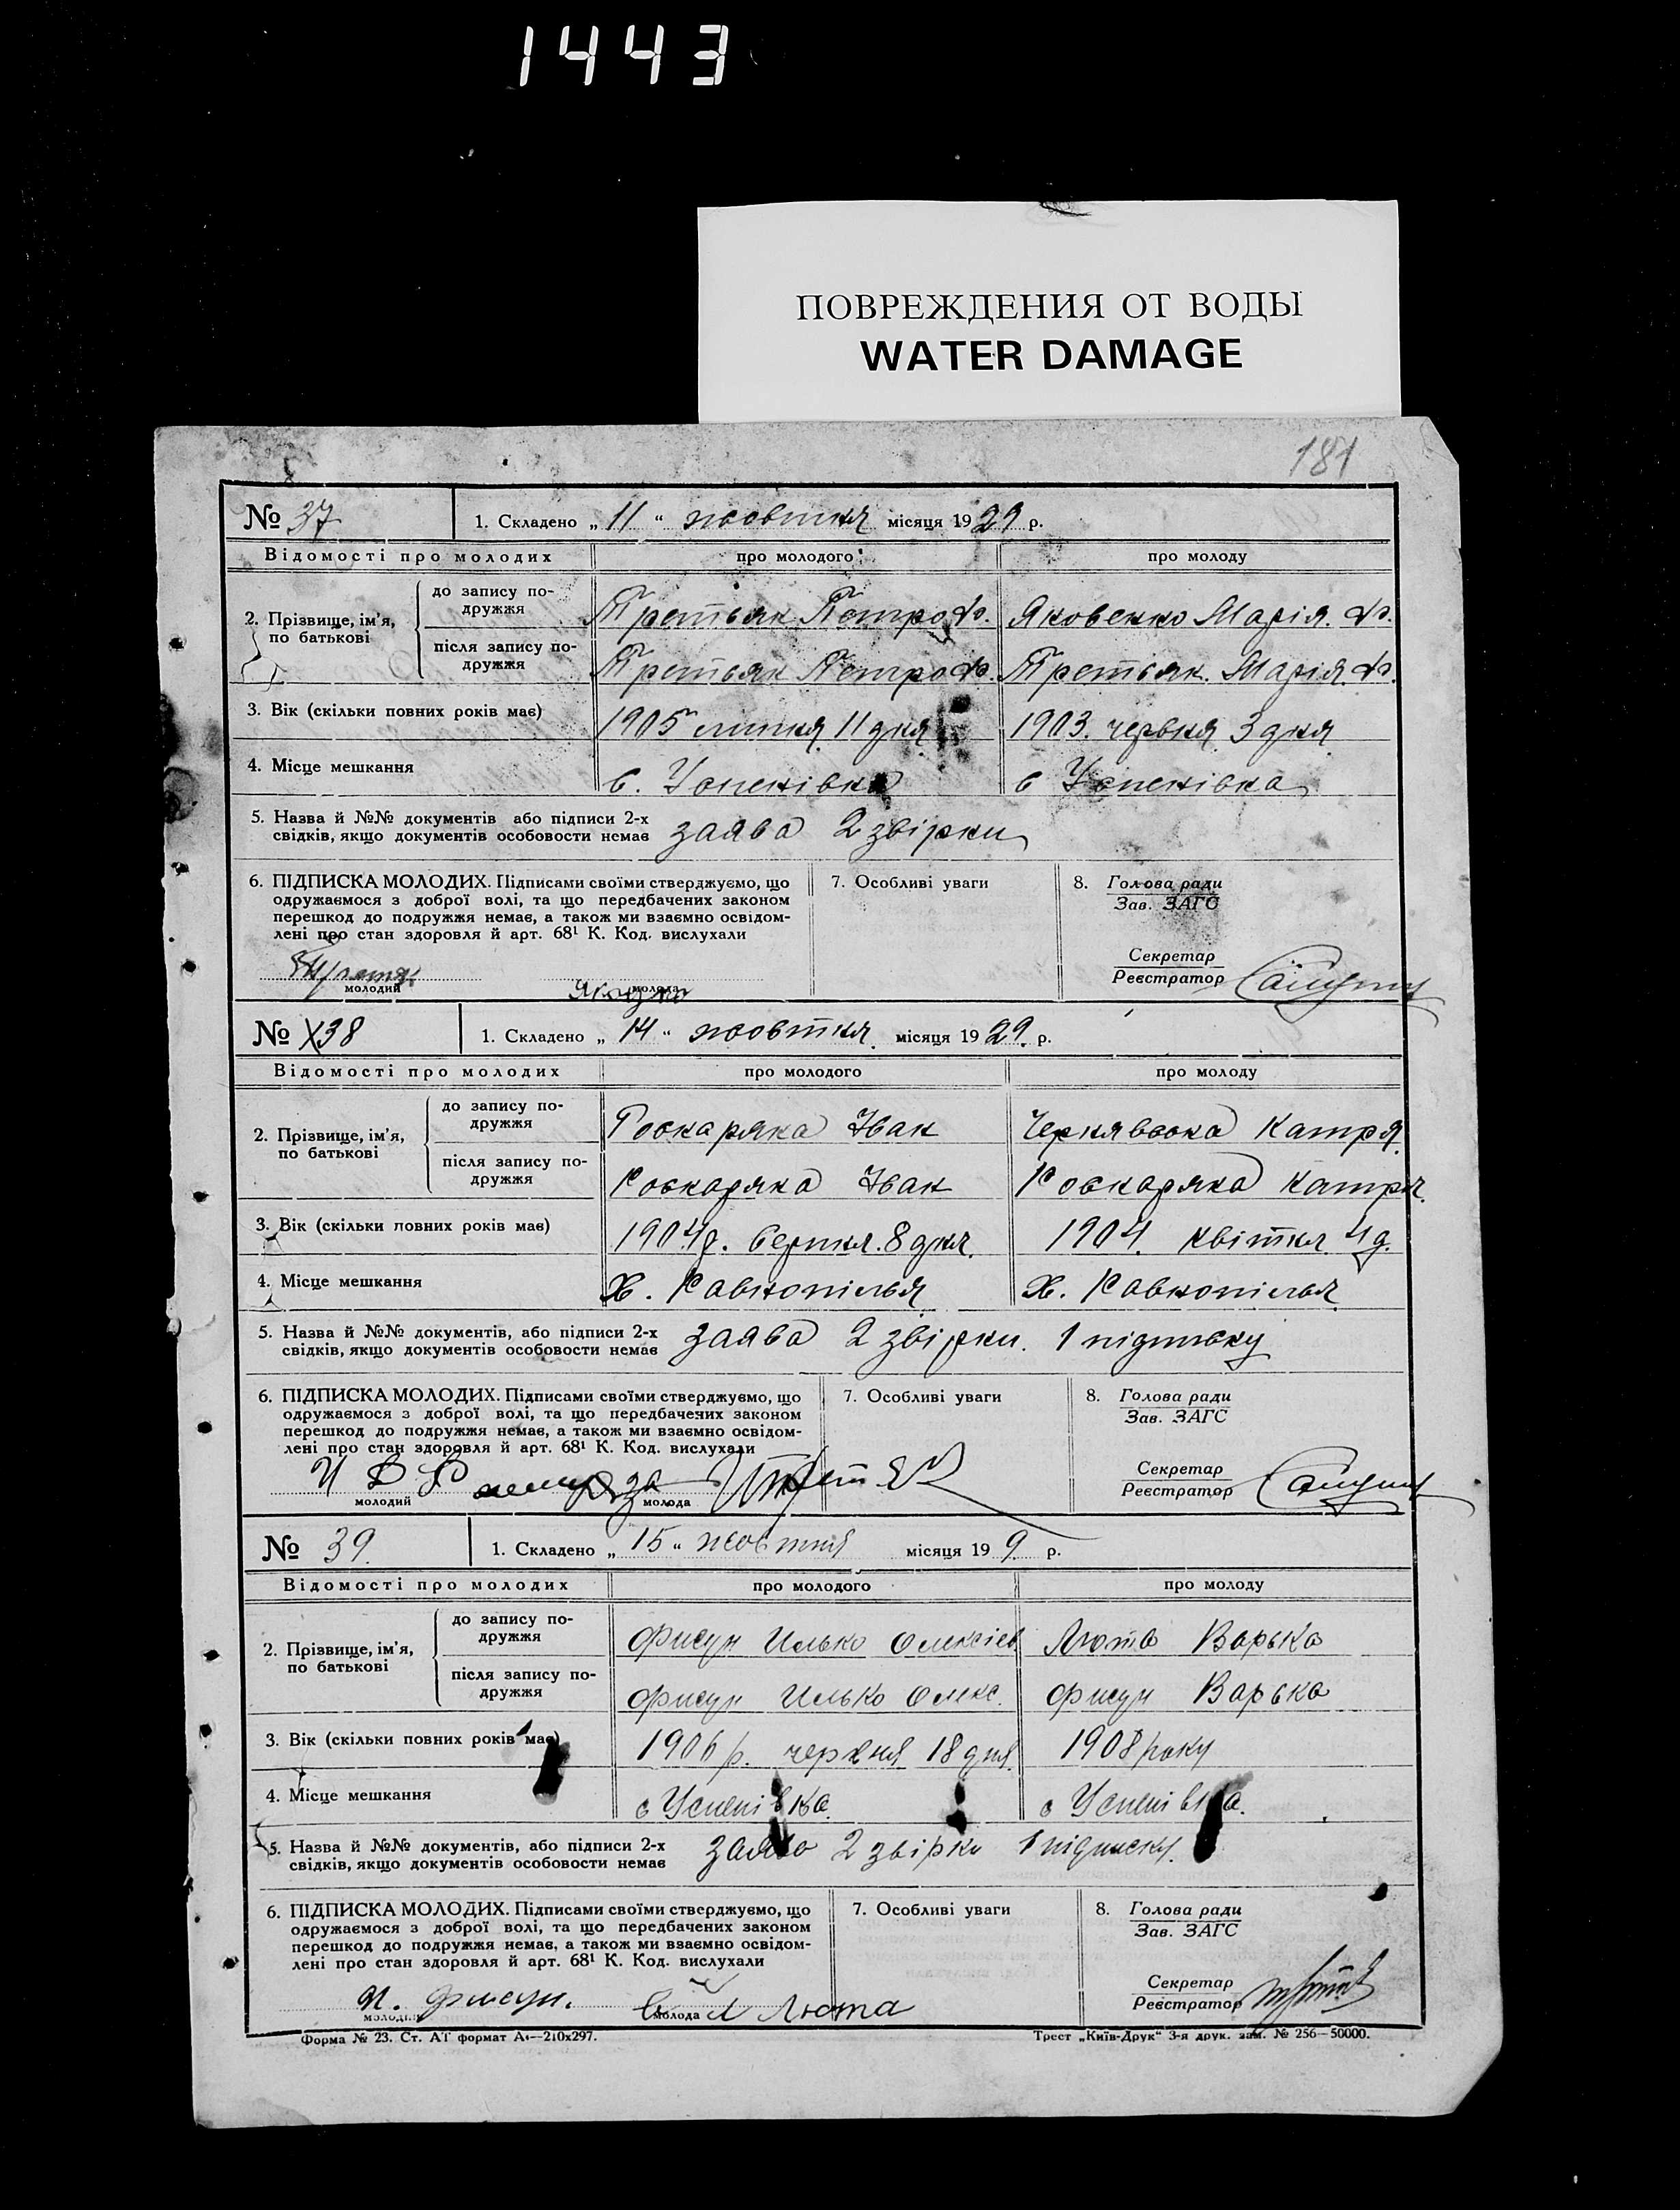 1443
ПОВРЕЖДЕНИЯ ОТ ВОДЫ
WATER DAMAGE
181
№ 37 1. Складено „ 11 “ жовтня місяця 1929 р.
Відомості про молодих про молодого про молоду
2. Прізвище, ім'я, по батькові
до запису по-дружжя Третьяк Петро Ф. Яковенко Марія Ф.
після запису по-дружжя Третьяк Петро Ф. Третьяк Марія Ф.
3. Вік (скільки повних років має) 1905 липня 11 дня 1903. червня 3 дня
4. Місце мешкання с. Успенівка с Успенівка
5. Назва й №№ документів або підписи 2-х
свідків, якщо документів особовости немає заява 2 звірки
6. ПІДПИСКА МОЛОДИХ. Підписами своїми стверджуємо, що 7. Особливі уваги 8. Голова ради
одружаємося з доброї волі, та що передбачених законом Зав. ЗАГС
перешкод до подружжя немає, а також ми взаємно освідом-
лені про стан здоровля й арт. 68¹ К. Код. вислухали
Секретар
Реєстратор
молодий молода
№ 38 1. Складено „ 14 “ жовтня місяця 1929. р.
Відомості про молодих про молодого про молоду
2. Прізвище, ім'я, по батькові
до запису по-дружжя Роскаряка Іван Чернявська Катря
після запису по-дружжя Роскаряка Іван Роскаряка Катря
3. Вік (скільки повних років має) 1904р. берпня. 8 дня. 1904. квітня 4 д.
4. Місце мешкання Х. Равнопілья Х. Равнопілья
5. Назва й №№ документів, або підписи 2-х
свідків, якщо документів особовости немає заява 2 звірки. 1 підписку
6. ПІДПИСКА МОЛОДИХ. Підписами своїми стверджуємо, що 7. Особливі уваги 8. Голова ради
одружаємося з доброї волі, та що передбачених законом Зав. ЗАГС
перешкод до подружжя немає, а також ми взаємно освідом-
лені про стан здоровля й арт. 68¹ К. Код. вислухали
Секретар
Реєстратор
молодий молода
№ 39. 1. Складено „ 15 “ жовтня місяця 19 9. р.
Відомості про молодих про молодого про молоду
2. Прізвище, ім'я, по батькові
до запису по-дружжя Фисун Илько Олексієв Люта Варька
після запису по-дружжя Фисун Илько Олекс. Фисун Варька
3. Вік (скільки повних років має) 1906 р. червня 18 дня. 1908 року
4. Місце мешкання с Успенівка. с Успенівка.
5. Назва й №№ документів, або підписи 2-х
свідків, якщо документів особовости немає заява 2 звірки 1 підписку.
6. ПІДПИСКА МОЛОДИХ. Підписами своїми стверджуємо, що 7. Особливі уваги 8. Голова ради
одружаємося з доброї волі, та що передбачених законом Зав. ЗАГС
перешкод до подружжя немає, а також ми взаємно освідом-
лені про стан здоровля й арт. 68¹ К. Код. вислухали
Секретар
Реєстратор
И. Фисун. Люта
молодий молода
Форма № 23. Ст. АТ формат А₄—210х297. Трест „Київ-Друк“ 3-я друк. зам. № 256—50000.